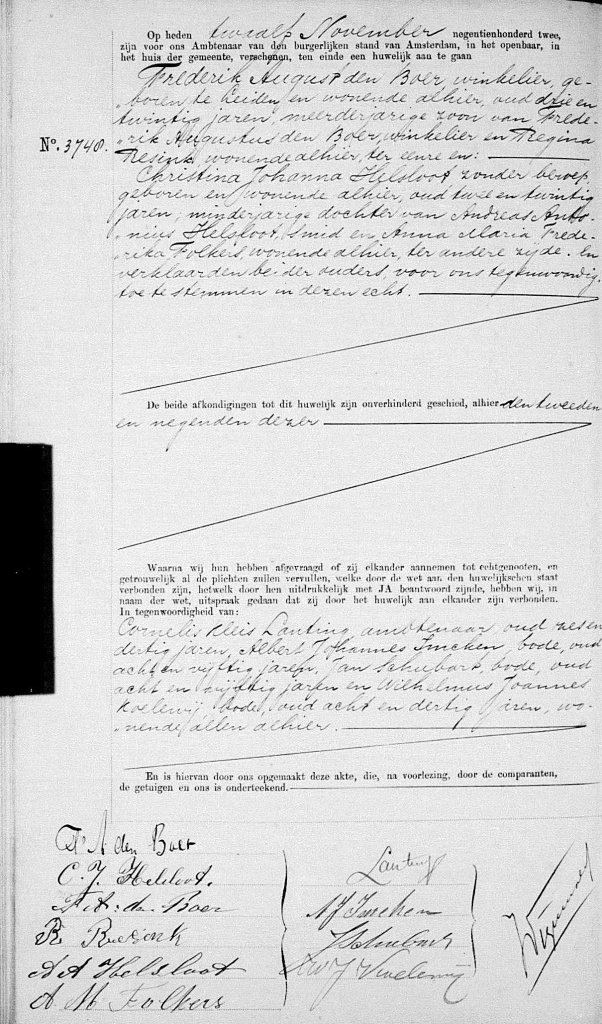 Op heden twaalf November negentienhonderd twee,
zijn voor ons Ambtenaar van den burgerlijken stand van Amsterdam, in het openbaar, in
het huis der gemeente, verschenen, ten einde een huwelijk aan te gaan
Frederik August den Boer, winkelier, ge-
boren te Leiden en wonende alhier, oud drie en
twintig jaren, meerderjarige zoon van Frede-
N°. 3748. rik Augustus den Boer, winkelier en Regina
Resink, wonende alhier, ter eenre en:
Christina Johanna Helsloot zonder beroep,
geboren en wonende alhier, oud twee en twintig
jaren, minderjarige dochter van Andreas Anto-
nius Helsloot, smid en Anna Maria Frede-
rika Folkers, wonende alhier, ter andere zijde. En
verklaarden beider ouders, voor ons tegenwoordig,
toe te stemmen in dezen echt.
De beide afkondigingen tot dit huwelijk zijn onverhinderd geschied, alhier den tweeden
en negenden dezer
Waarna wij hun hebben afgevraagd of zij elkander aannemen tot echtgenooten, en
getrouwelijk al de plichten zullen vervullen, welke door de wet aan den huwelijkschen staat
verbonden zijn, hetwelk door hen uitdrukkelijk met JA beantwoord zijnde, hebben wij, in
naam der wet, uitspraak gedaan dat zij door het huwelijk aan elkander zijn verbonden.
In tegenwoordigheid van:
Cornelis Kleis Lanting, ambtenaar, oud zes en
dertig jaren, Albert Johannes Imchen, bode, oud
acht en vijftig jaren, Jan Schubart, bode, oud
acht en vijftig jaren en Wilhelmus Joannes
Koelewij, bode, oud acht en dertig jaren, wo-
nende allen alhier.
En is hiervan door ons opgemaakt deze akte, die, na voorlezing, door de comparanten,
de getuigen en ons is onderteekend.
F A den Boer
C. J. Helsloot.
F. A. den Boer
R Reesink
A A Helsloot
A M Folkers
Lanting
A J Imchen
J Schubart
W J Koelewij